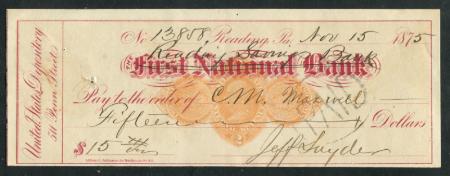 No 13858, Reading Pa, Nov 15 1875
Reading Savings Bank
THE First National Bank
Pay to the order of C. M. Maxwell
Fifteen Dollars
$15
Jeff Snyder
United States Depository
Penn Street